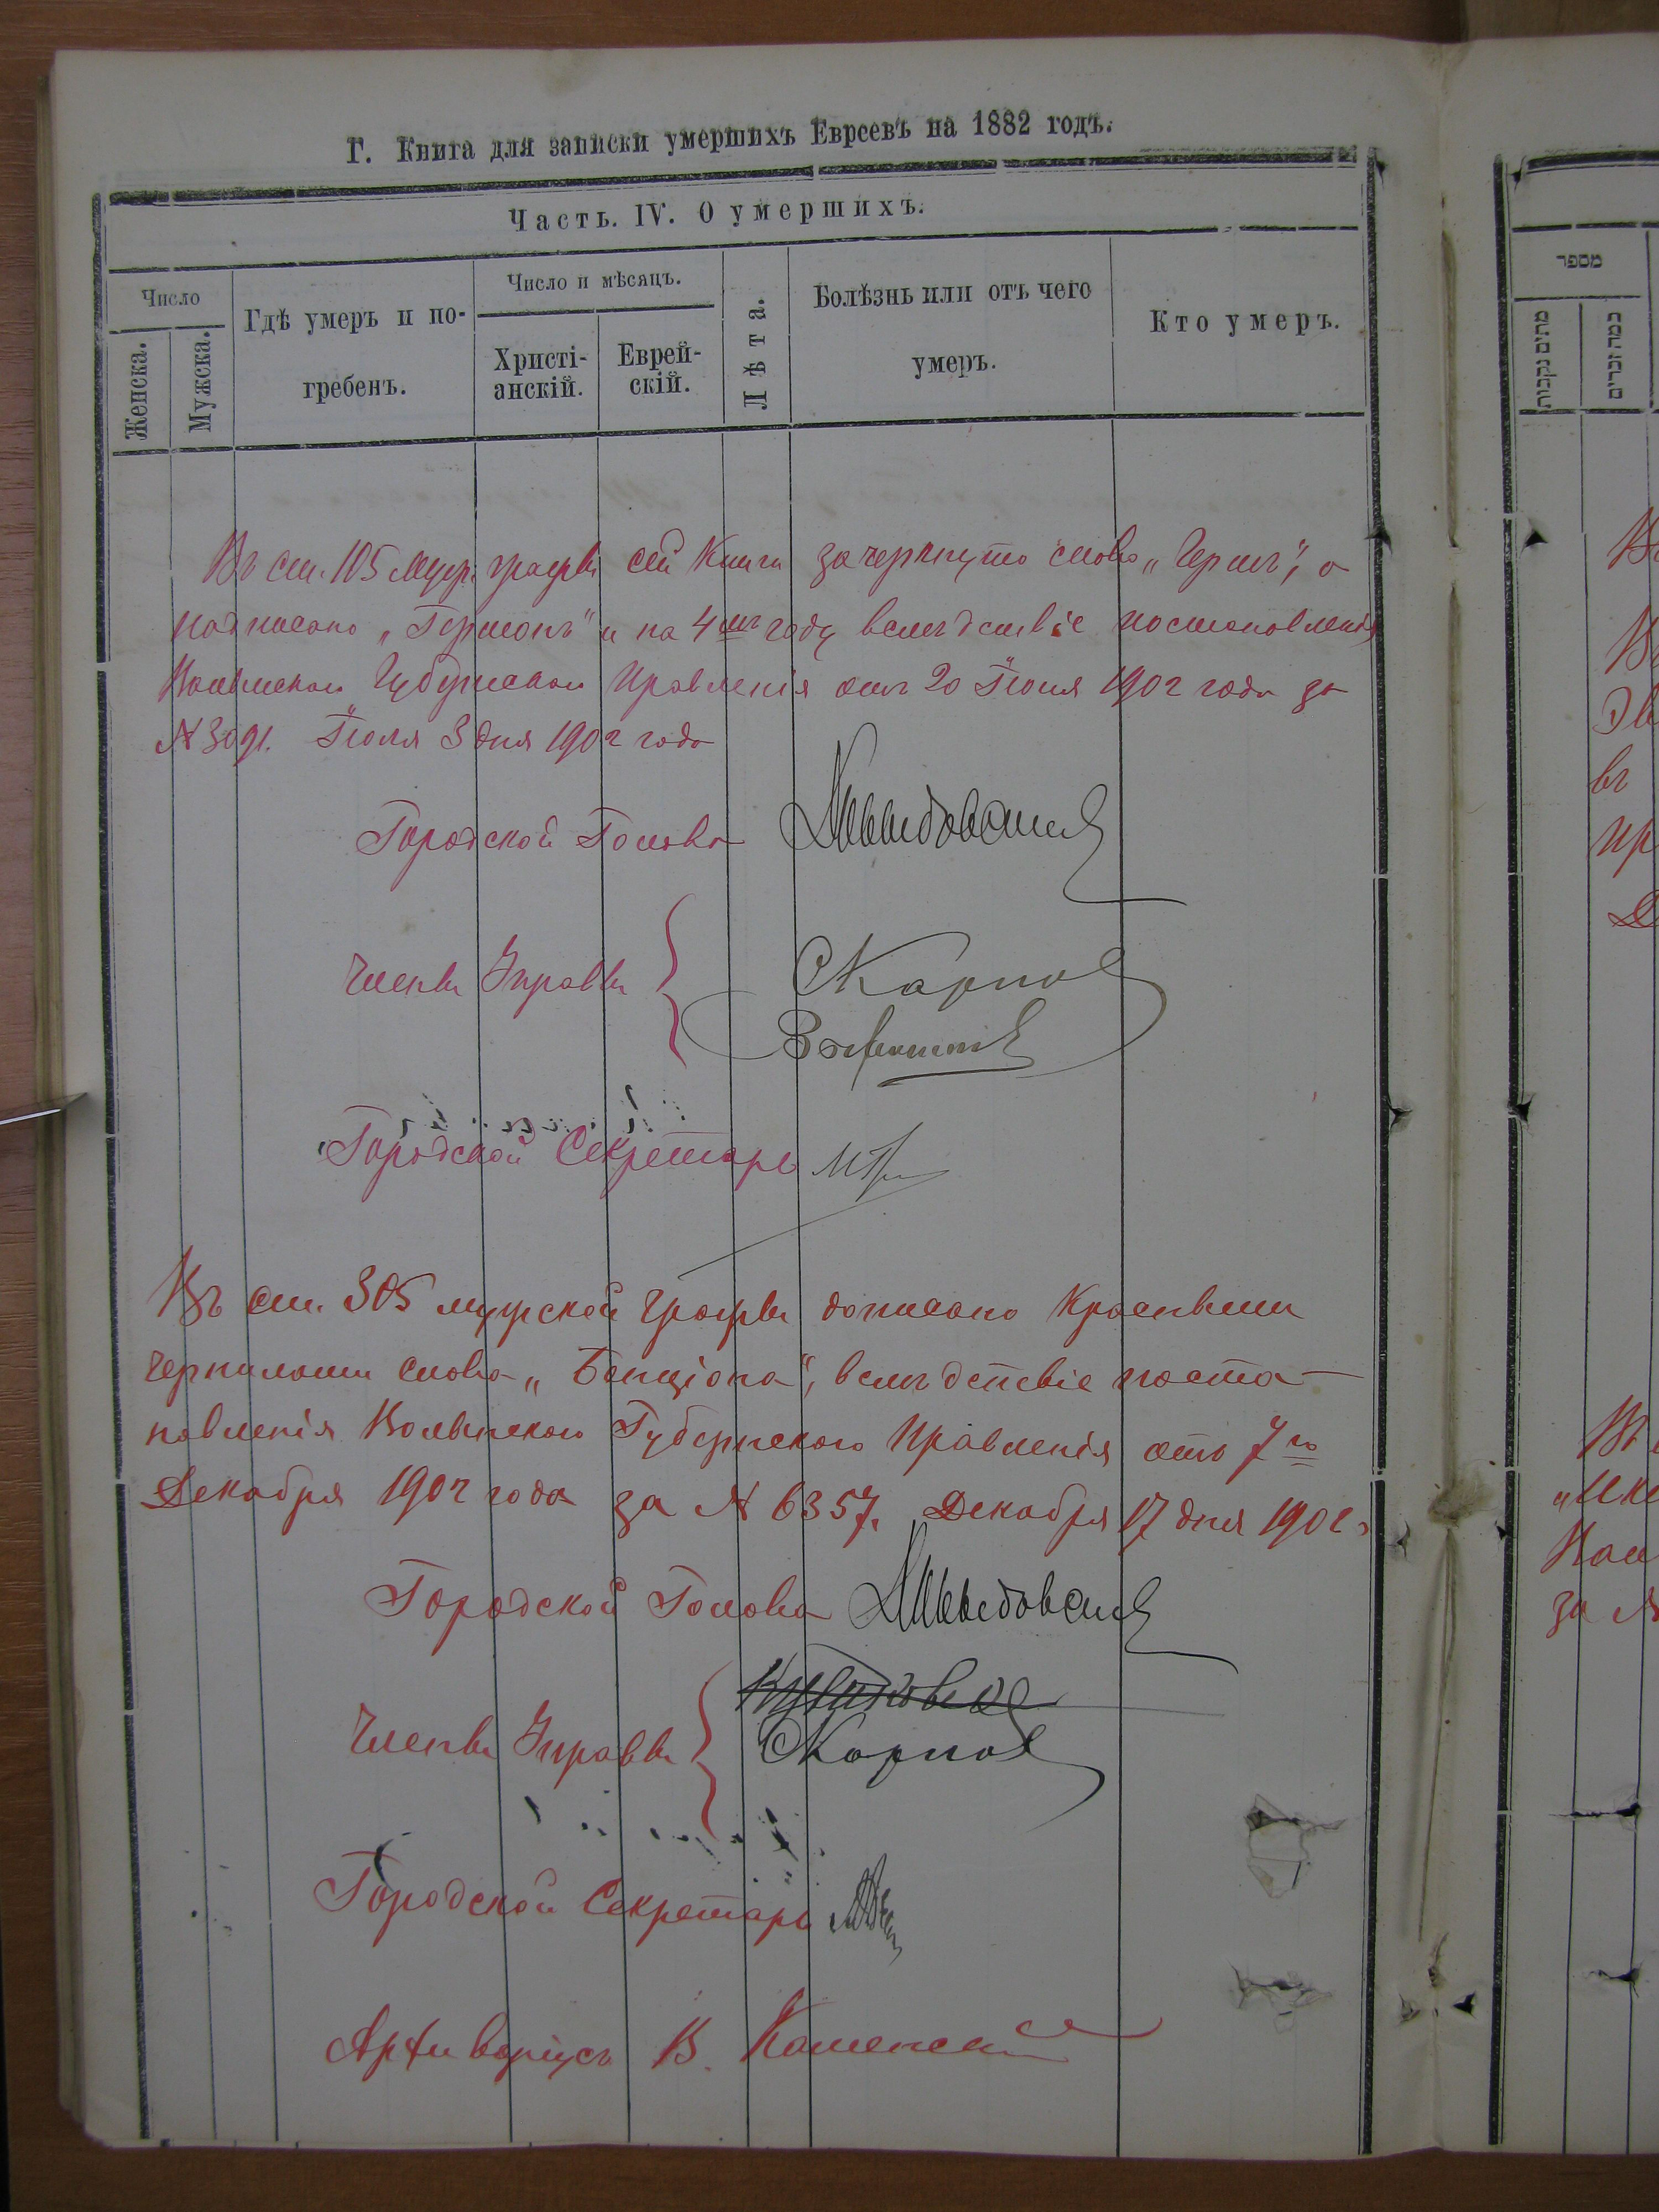 Г. Книга для записки умершихъ Евреевъ на 1882 годъ.
Часть. IV. О умершихъ.
Число
Женска.
Мужска.
Гдѣ умеръ и по-
гребенъ.
Число и мѣсяцъ.
Христі-
анскій.
Еврей-
скій.
Лѣта.
Болѣзнь или отъ чего
умеръ.
Кто умеръ.
Въ ст. 105 муж. графы сей Книги зачеркнуто слово „Гершъ", а
надписано „Гершонъ" и на 4мъ году вслѣдствіе постановленія
Волынскаго Губернскаго Правленія отъ 20 Іюня 1902 года за
№ 3091. Іюля 3 дня 1902 года
Городской Голова
Члены Управы
СКарпов
Городской Секретарь
Въ ст. 305 мужской графы дописано красными
чернилами слова „Бенціона", вслѣдствіе поста-
новленія Волынскаго Губернскаго Правленія отъ 7го
Декабря 1902 года за № 6357. Декабря 17 дня 1902 г
Городской Голова
Члены Управы
СКарпов
Городской Секретарь
Архиваріусъ В. Каменскій
מספר
מתים נקבות
כמה זכרים
Въ
въ
Въ
за №